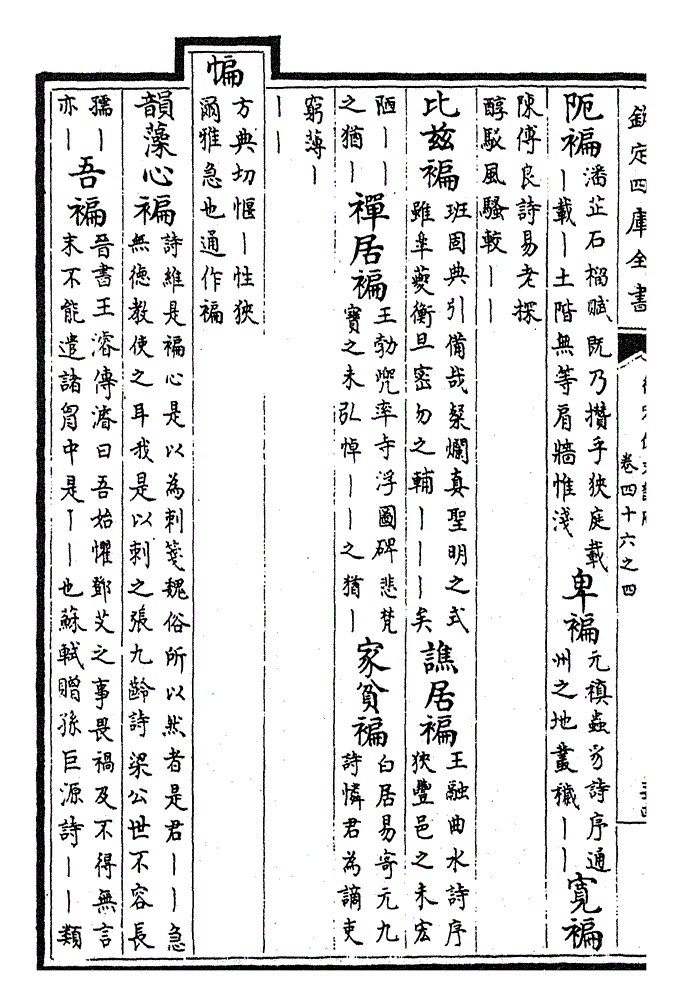 欽定四庫全書
卷四十六之四
阨褊
潘芷石榴賦既乃攢乎狹庭載
丨載丨土階無等肩牆惟淺
卑褊
元稹蟲豸詩序通
州之地叢穢丨丨
寛褊
陳傅良詩易老探
醇駁風騷較丨丨
比兹褊
班固典引備哉粲爛真聖明之式
雖臯夔衡旦密勿之輔丨丨丨矣
譙居褊
王融曲水詩序
狹豐邑之未宏
陋丨丨
之猶丨
禪居褊
王勃兜率寺浮圖碑悲梵
寶之未弘悼丨丨之猶丨
家貧褊
白居易寄元九
詩憐君為謫吏
窮薄丨
丨丨
惼
方典切惬丨性狹
爾雅急也通作褊
韻藻心褊
詩維是褊心是以為刺箋魏俗所以然者是君丨丨急
無德教使之耳我是以刺之張九齡詩梁公世不容長
孺丨
亦丨
吾褊
晉書王濬傳濬曰吾始懼鄧艾之事畏禍及不得無言
末不能遣諸胷中是丨丨也蘇軾贈孫巨源詩丨丨類